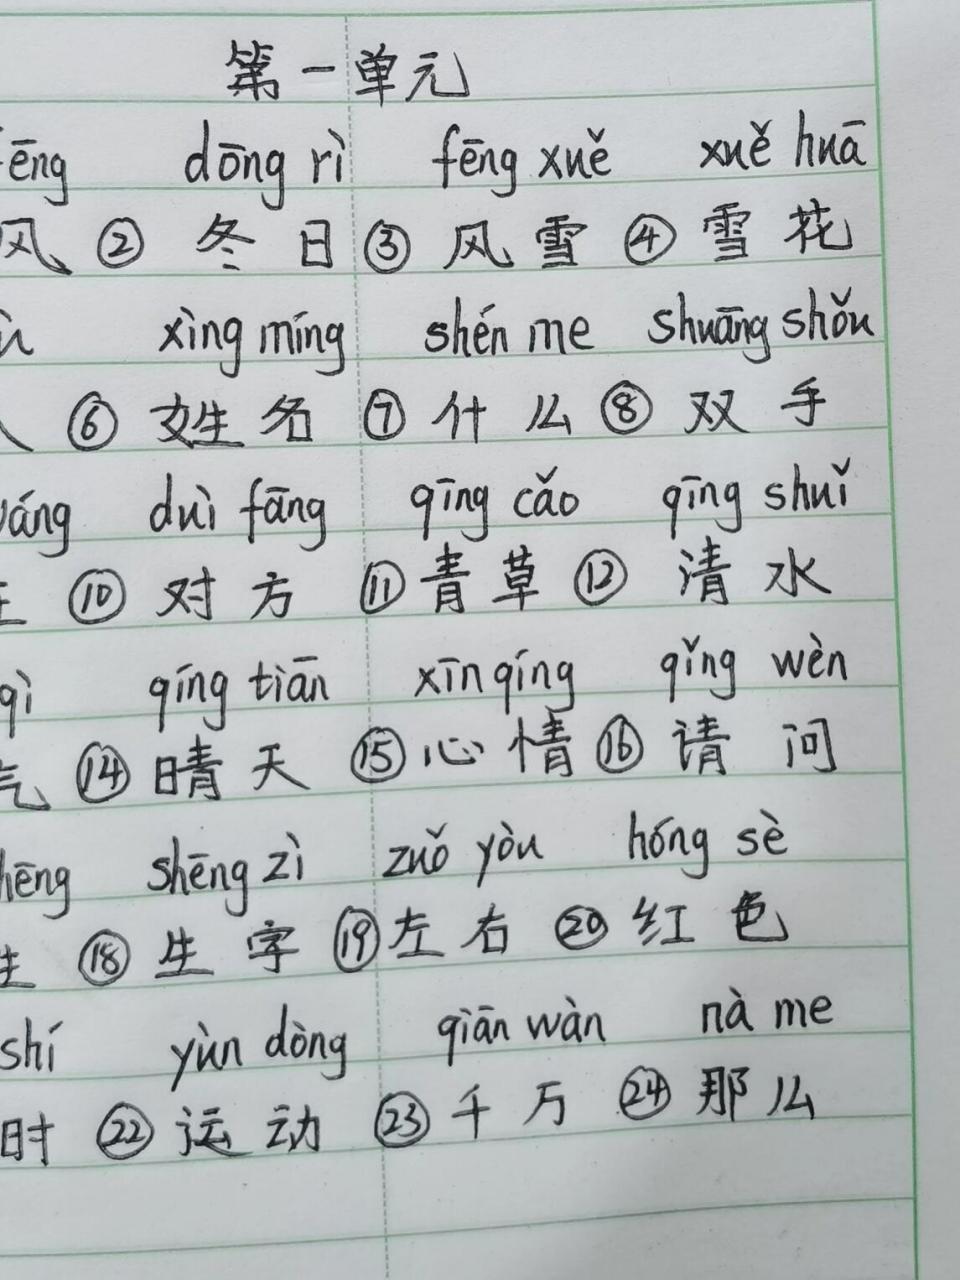 第一单元
fēng dōng rì fēng xuě xuě huā
风 ② 冬日 ③ 风雪 ④ 雪花
xìng míng shén me shuāng shǒu
⑥ 姓名 ⑦ 什么 ⑧ 双手
duì fāng qīng cǎo qīng shuǐ
⑩ 对方 ⑪ 青草 ⑫ 清水
qì qíng tiān xīn qíng qǐng wèn
气 ⑭ 晴天 ⑮ 心情 ⑯ 请问
shēng zì zuǒ yòu hóng sè
生 ⑱ 生字 ⑲ 左右 ⑳ 红色
shí yùn dòng qiān wàn nà me
时 ㉒ 运动 ㉓ 千万 ㉔ 那么